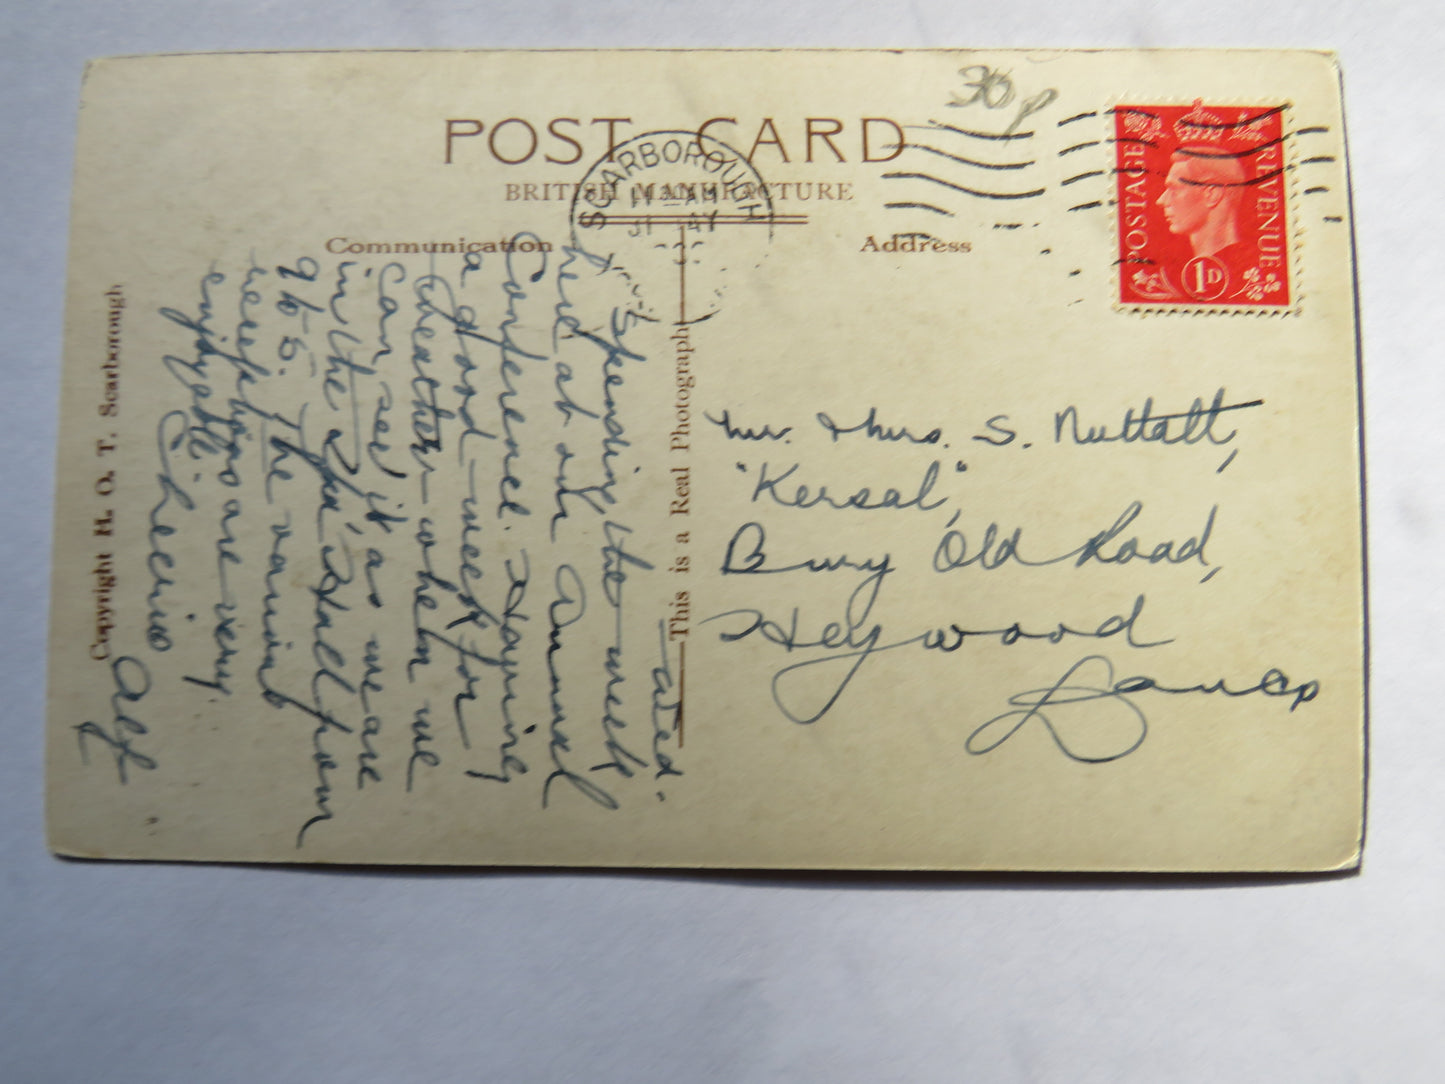 30p
POST CARD
BRITISH MANUFACTURE
SCARBOROUGH
11 AM
31 MY
POSTAGE
REVENUE
1D
Communication
Address
This is a Real Photograph
Copyright H. O. T. Scarborough
Spending the week
here at our Annual
Conference. Having
a good week for
weather when we
can see it as we are
in the Spa Hall from
9 to 5. The various
are very
enjoyable.
Cheerio
Alf
Mr. & Mrs. S. Nuttall,
"Kersal",
Bury Old Road,
Heywood
Lancs